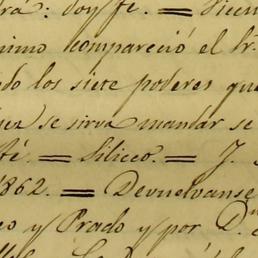 rá: doy fe. = Vicen
nimo compareció el Sr.
do los siete poderes que
se sirva mandar se
té. = Siliceo. = J.
1862. = Devuelvanse
eo y Prado y por D.n